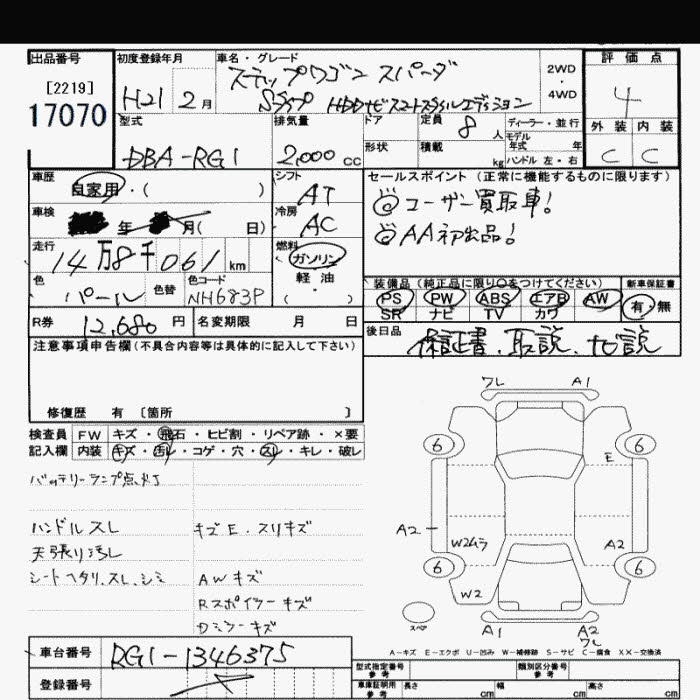 出品番号 [2219] 17070
初度登録年月 H21 2月
車名・グレード ステップワゴン スパーダ
Sタイプ HDDナビスマートスタイルエディション
2WD・4WD
評価点 4
外装 内装
C C
型式 DBA-RG1
排気量 2,000cc
ドア 定員 8人
形状 積載 kg
ディーラー・並行
モデル年式 年式
ハンドル 左・右
車歴 自家用・( )
シフト AT
車検 年 月( 日)
冷房 AC
走行 14万8千061km
燃料 ガソリン
軽油
( ・ )
色 パール 色替 色コード NH683P
R券 12,680円 名変期限 月 日
セールスポイント (正常に機能するものに限ります)
◎ユーザー買取車!
◎AA初出品!
装備品(純正品に限り○をつけてください)
PS PW ABS エアB AW
SR ナビ TV カワ
新車保証書
有・無
後日品 保証書、取説、ナビ説
注意事項申告欄(不具合内容等は具体的に記入して下さい)
修復歴 有 〔箇所 〕
検査員記入欄
FW キズ・飛石・ヒビ割・リペア跡・×要
内装 キズ・汚れ・コゲ・穴・スレ・キレ・破レ
バッテリーランプ点灯
ハンドルスレ
天張り汚レ
シートヘタリ、スレ、シミ
キズE、スリキズ
AWキズ
Rスポイラーキズ
Dミラーキズ
ワレ A1
6 6
E
A2
W2ムラ A2
6 6
W2
スペア
A1 A2
ワレ
A-キズ E-エクボ U-凹み W-補修跡 S-サビ C-腐食 XX-交換済
車台番号 RG1-1346375
登録番号
型式指定番号 参考
類別区分番号 参考
車庫証明用 参考 長さ cm 幅 cm 高さ cm